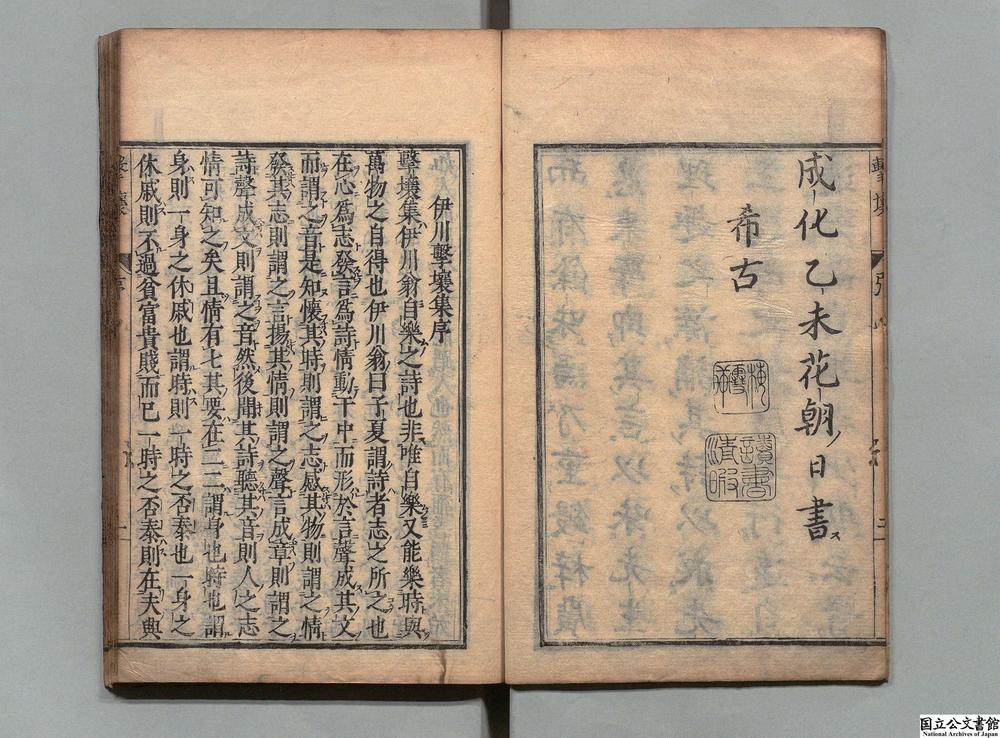 成化乙未花朝ノ日書ス
希古
梅雪軒
讀書清暇
伊川擊壤集序
擊壤集伊川翁自樂之詩也非唯自樂又能樂時與
萬物之自得也伊川翁曰子夏謂詩者志之所之也
在心爲志發言爲詩情動于中而形於言聲成其文
而謂之音是知懷其時則謂之志感其物則謂之情
發其志則謂之言揚其情則謂之聲言成章則謂之
詩聲成文則謂之音然後聞其詩聽其音則人之志
情可知之矣且情有七其要在二二謂身也時也謂
身則一身之休戚也謂時則一時之否泰也一身之
休戚則不過貧富貴賤而已一時之否泰則在夫興
国立公文書館
National Archives of Japan